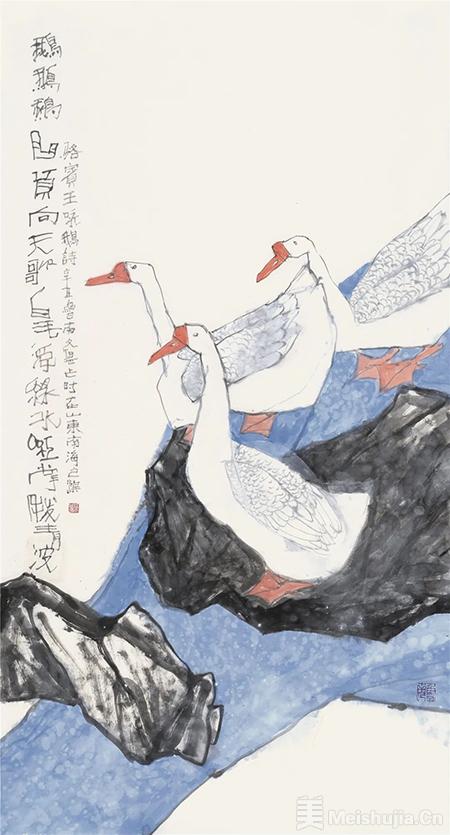 鵝鵝鵝曲項向天歌白毛浮綠水紅掌撥清波
駱賓王詠鵝詩辛丑魯南时在山東南海之濱
美 Meishujia.Cn